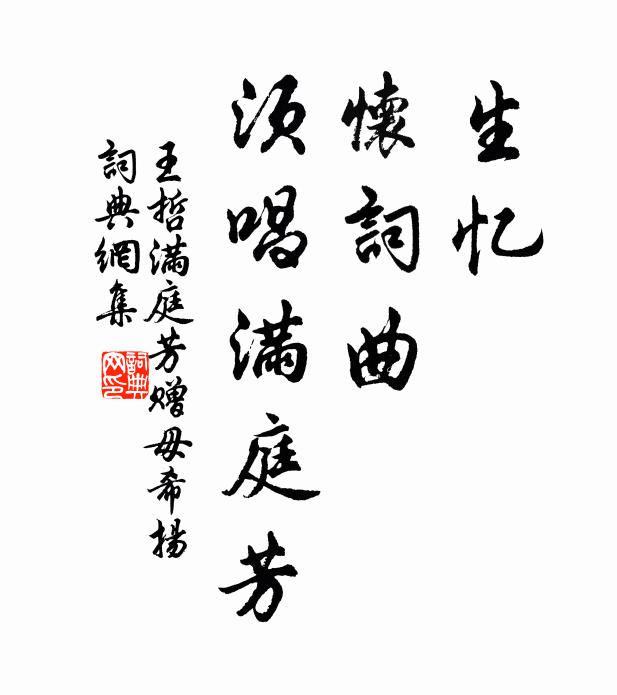 生忆
懷詞曲
须唱满庭芳
王哲满庭芳赠毋希揚
詞典網集
詞典网印